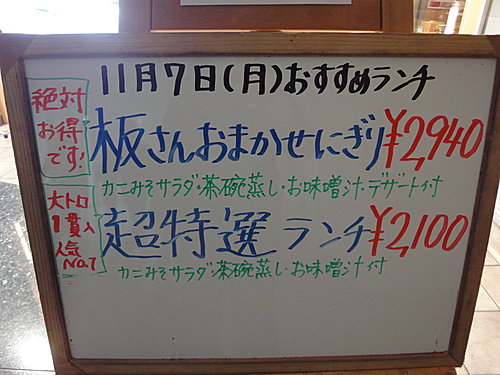 11月7日(月)おすすめランチ
絶対
お得
です!
板さんおまかせにぎり¥2,940
カニみそサラダ・茶碗蒸し・お味噌汁・デザート付
大トロ
1貫入
人気
NO.1
超特選ランチ¥2,100
カニみそサラダ・茶碗蒸し・お味噌汁付